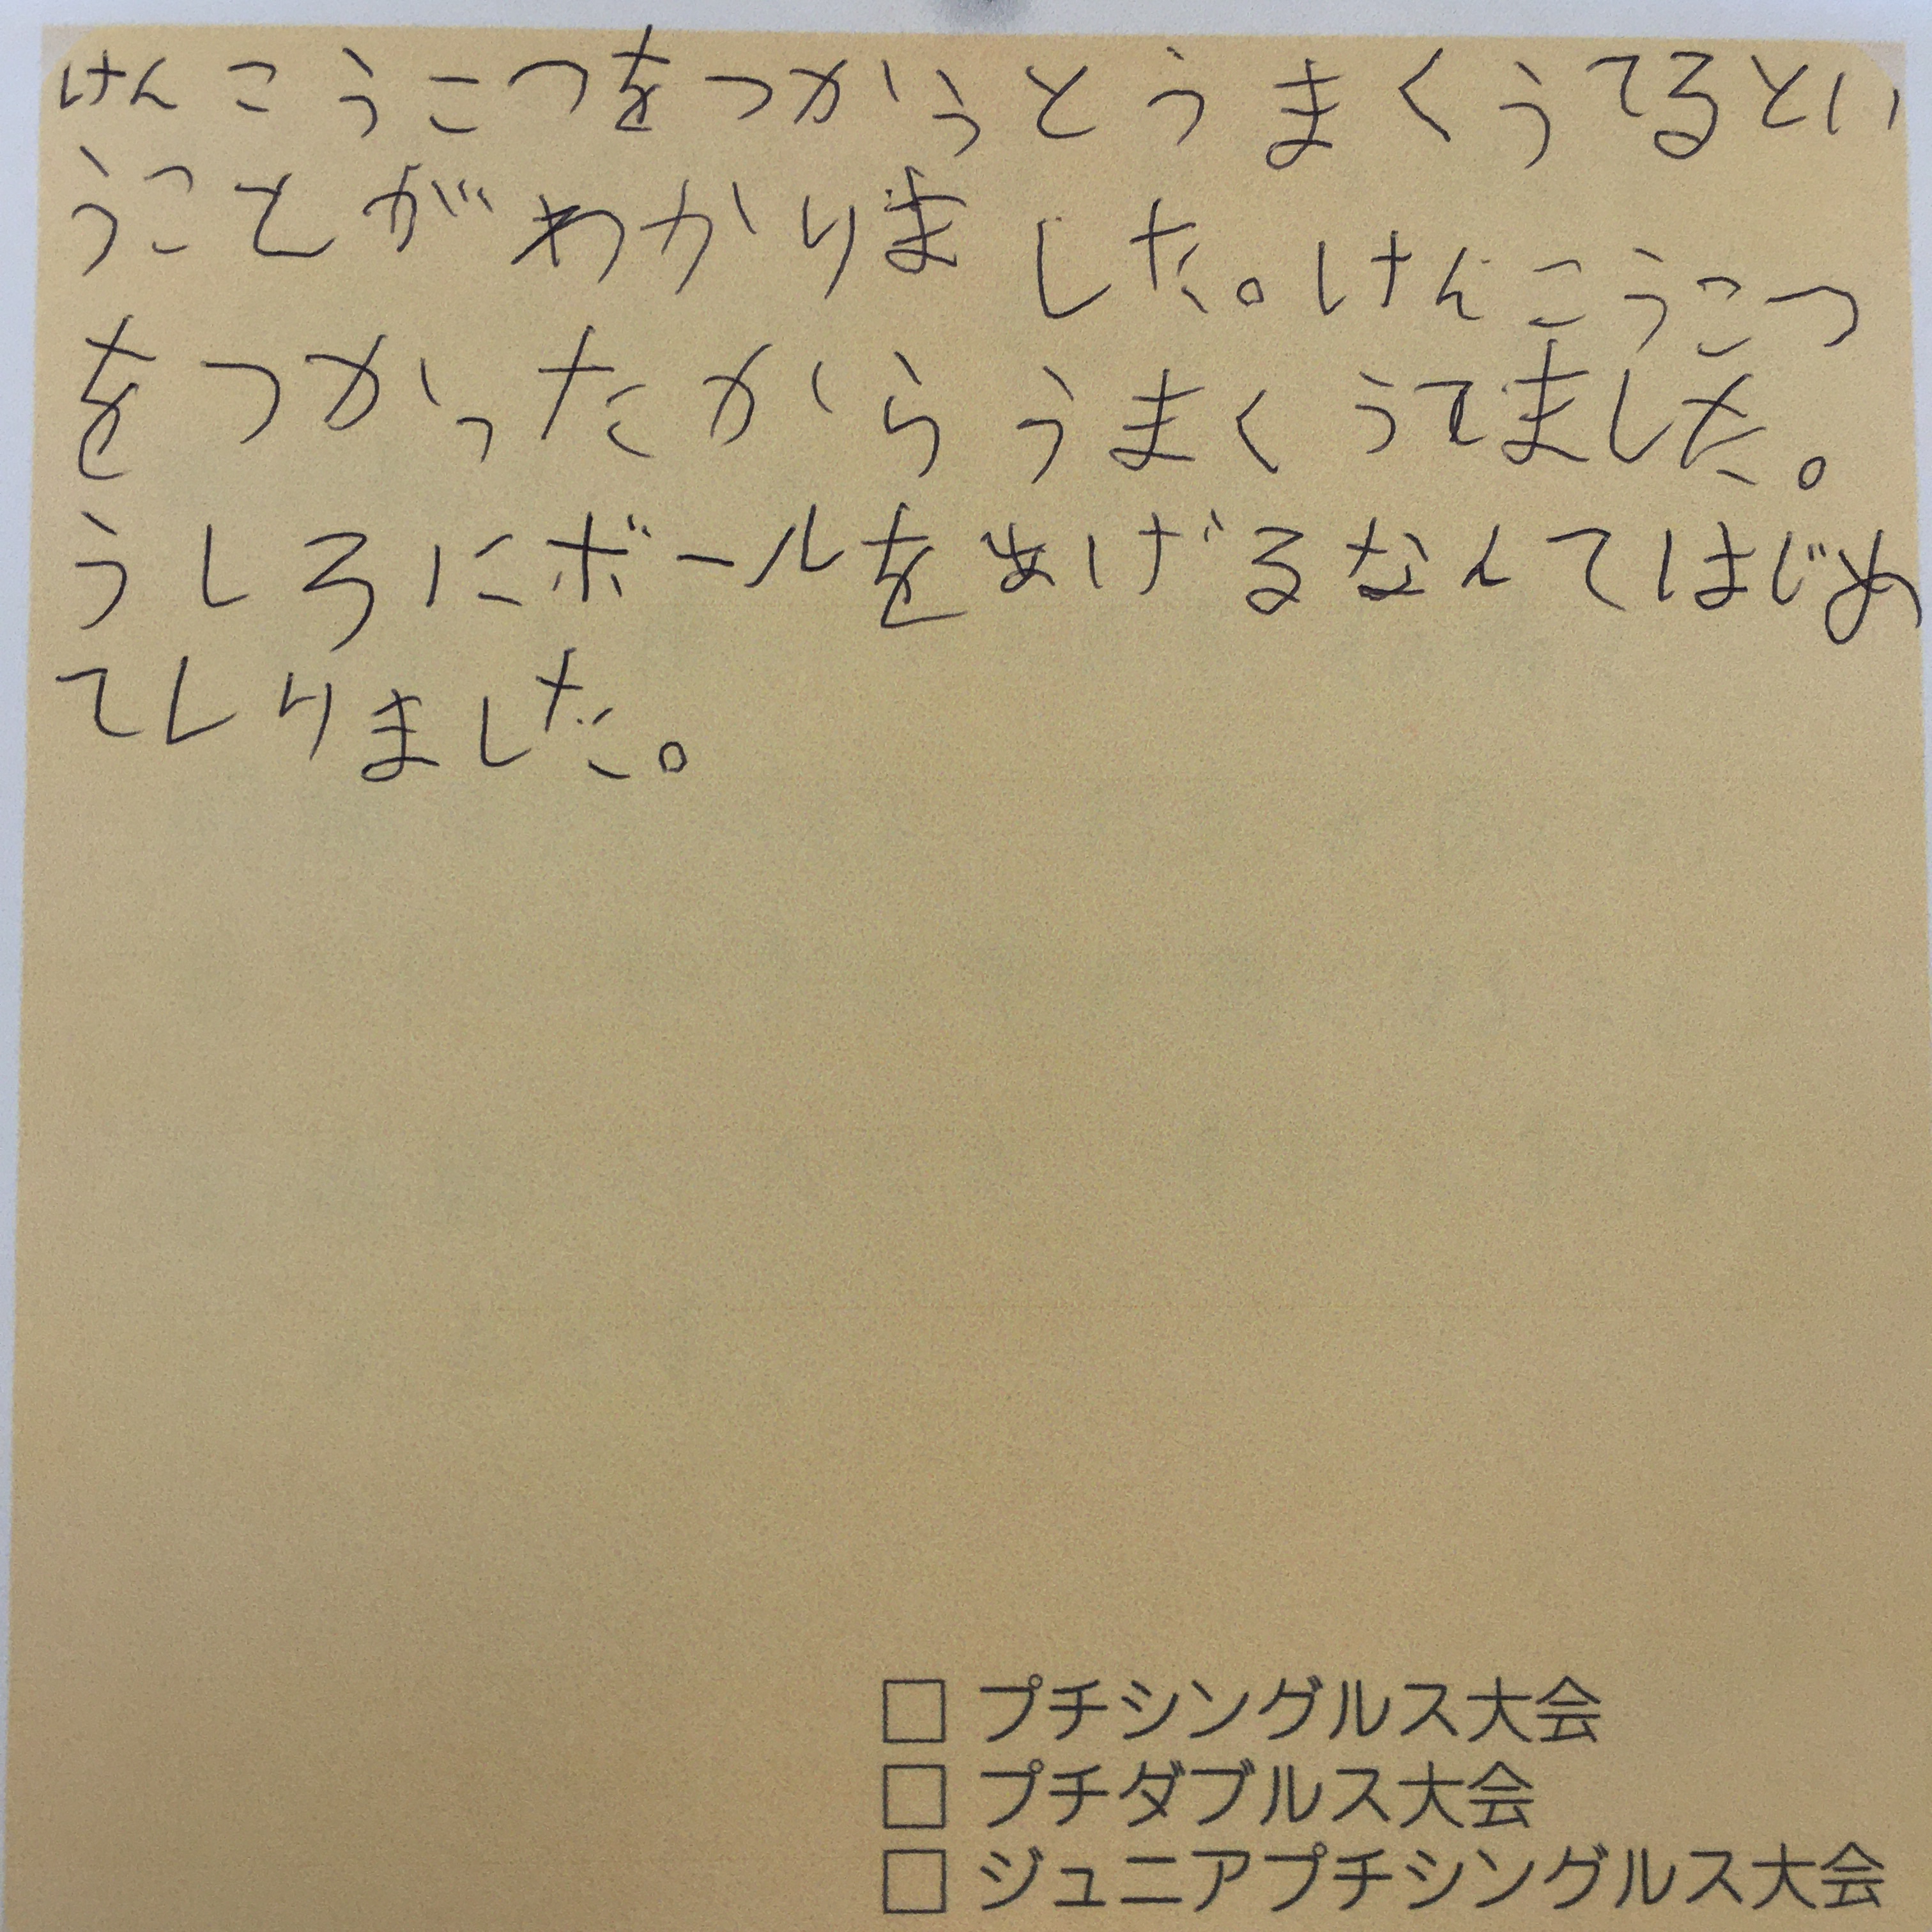 けんこうこつをつかうとうまくうてるとい
うことがわかりました。けんこうこつ
をつかったからうまくうてました。
うしろにボールをあげるなんてはじめ
てしりました。
□ プチシングルス大会
□ プチダブルス大会
□ ジュニアプチシングルス大会